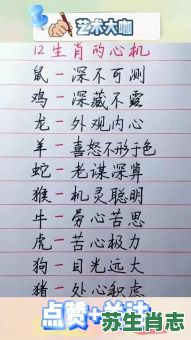 艺术大咖
12生肖的心机
鼠－深不可测
鸡－深藏不露
龙－外观内心
羊－喜怒不形于色
蛇－老谋深算
猴－机灵聪明
牛－劳心苦思
虎－苦心极力
狗－目光远大
猪－外心积虑
点赞+关注
苏生肖志